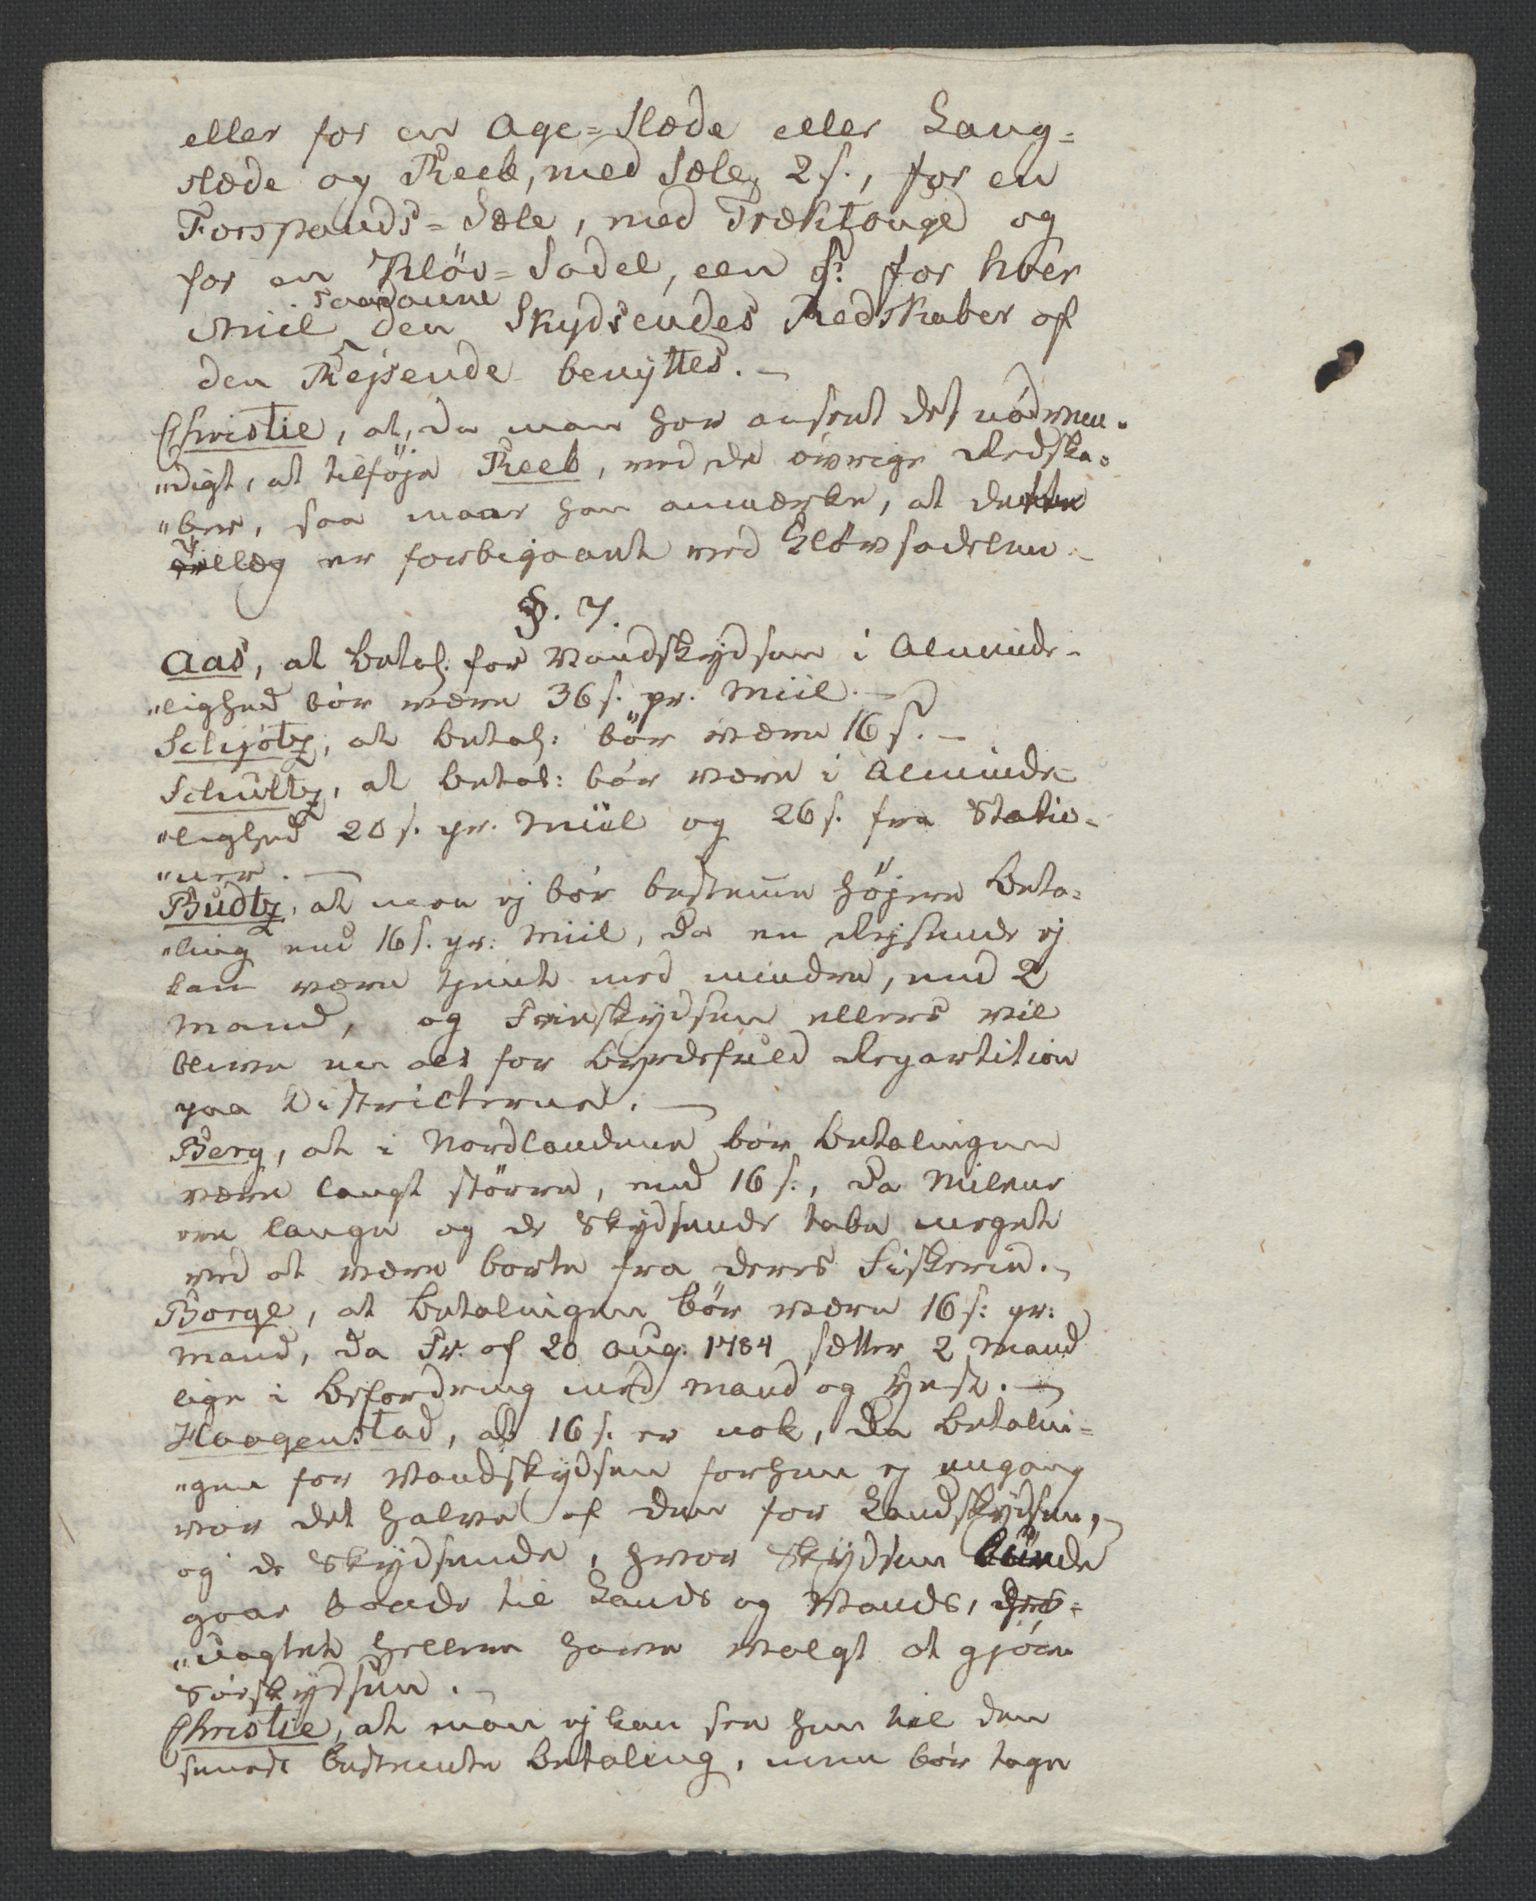 eller for en Age=Slæde eller Lang=
slæde og Reeb, med Sæle, 2 s., for en
Forspands=Sæle, med Træktouge og
for en Kløv=Sadel, een s. for hver
Miil saadanne den Skydsendes Redskaber af
den Rejsende benyttes. —
Christie, at, da man har anseet det nødven-
"digt, at tilføja Reeb, ved de øvrige Redska-
"ber, saa maar han anmærke, at dette
Tillæg er forbigaaet ved Kløvsadelen. —
§. 7.
Aas, at betal. for Vandskydsen i Alminde-
"lighed bör være 36 s. pr. Miil. —
Schjøtz, at betal: bör være 16 s. —
Schultz, at betal: bör være i Alminde-
"lighed 20 s. pr. Miil og 26 s. fra Statio-
"ner. —
Budtz, at man ej bör bestemme højere Beta-
"ling end 16 s. pr: Miil, da en Rejsende ej
kan være tjent med mindre, end 2
Mand, og Friskydsen ellers vil
blive en alt for byrdefuld Repartition
paa Districterne. —
Berg, at i Nordlandene bör betalingen
være langt större, end 16 s., da Milene
ere lange og de Skydsende tabe meget
ved at være borte fra deres Fiskerie. —
Borge, at betalingen bör være 16 s: pr:
Mand, da Fr. af 20 Aug. 1784 sætter 2 Mand
lige i Befordring med Mand og Hest. —
Haagenstad, at 16 s. er nok, da Betalin-
"gen for Vandskydsen forhen ej engang
var det halve af den for Landskydsen,
og de Skydsende, hvor Skydsen
gaar baade til Lands og Vands, des-
"uagtet hellere have valgt at gjöre
Söeskydsen. —
Christie, at man ej kan see hen til den
seneste bestemte betaling, men bör tage